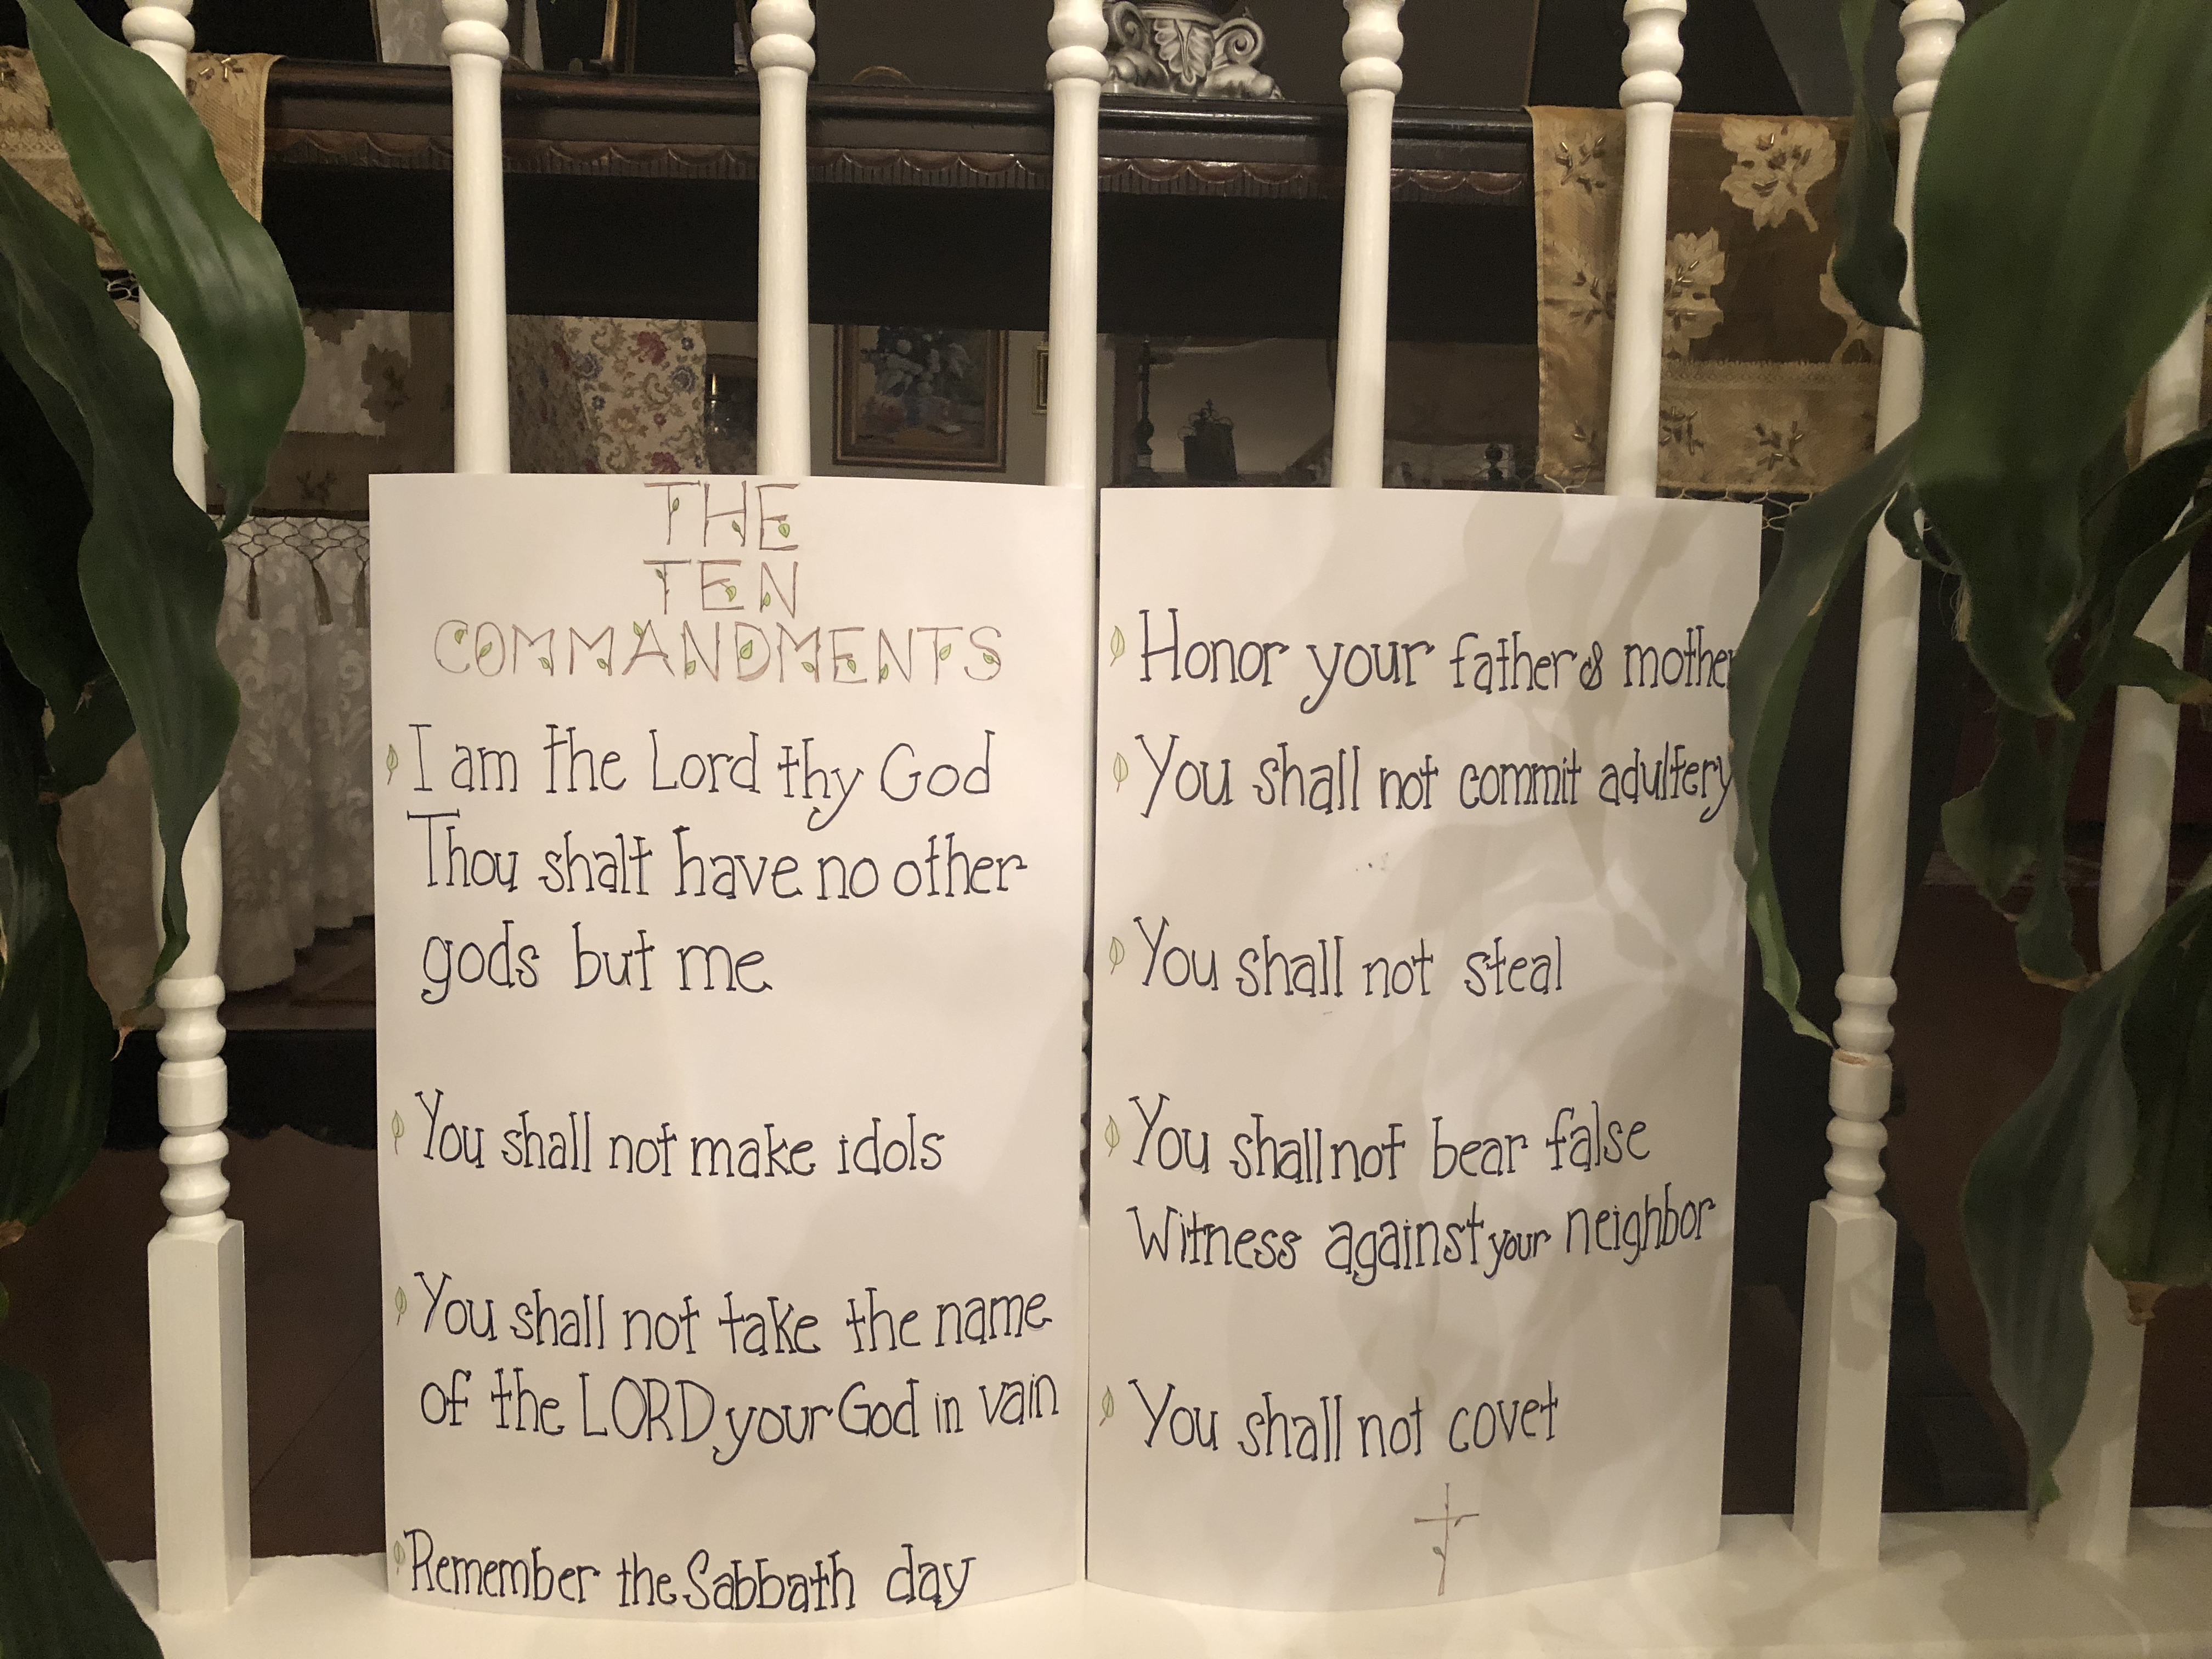 THE
TEN
COMMANDMENTS
I am the Lord thy God
Thou shalt have no other
gods but me
You shall not make idols
You shall not take the name
of the LORD your God in vain
Remember the Sabbath day
Honor your father & mother
You shall not commit adultery
You shall not steal
You shall not bear false
Witness against your neighbor
You shall not covet